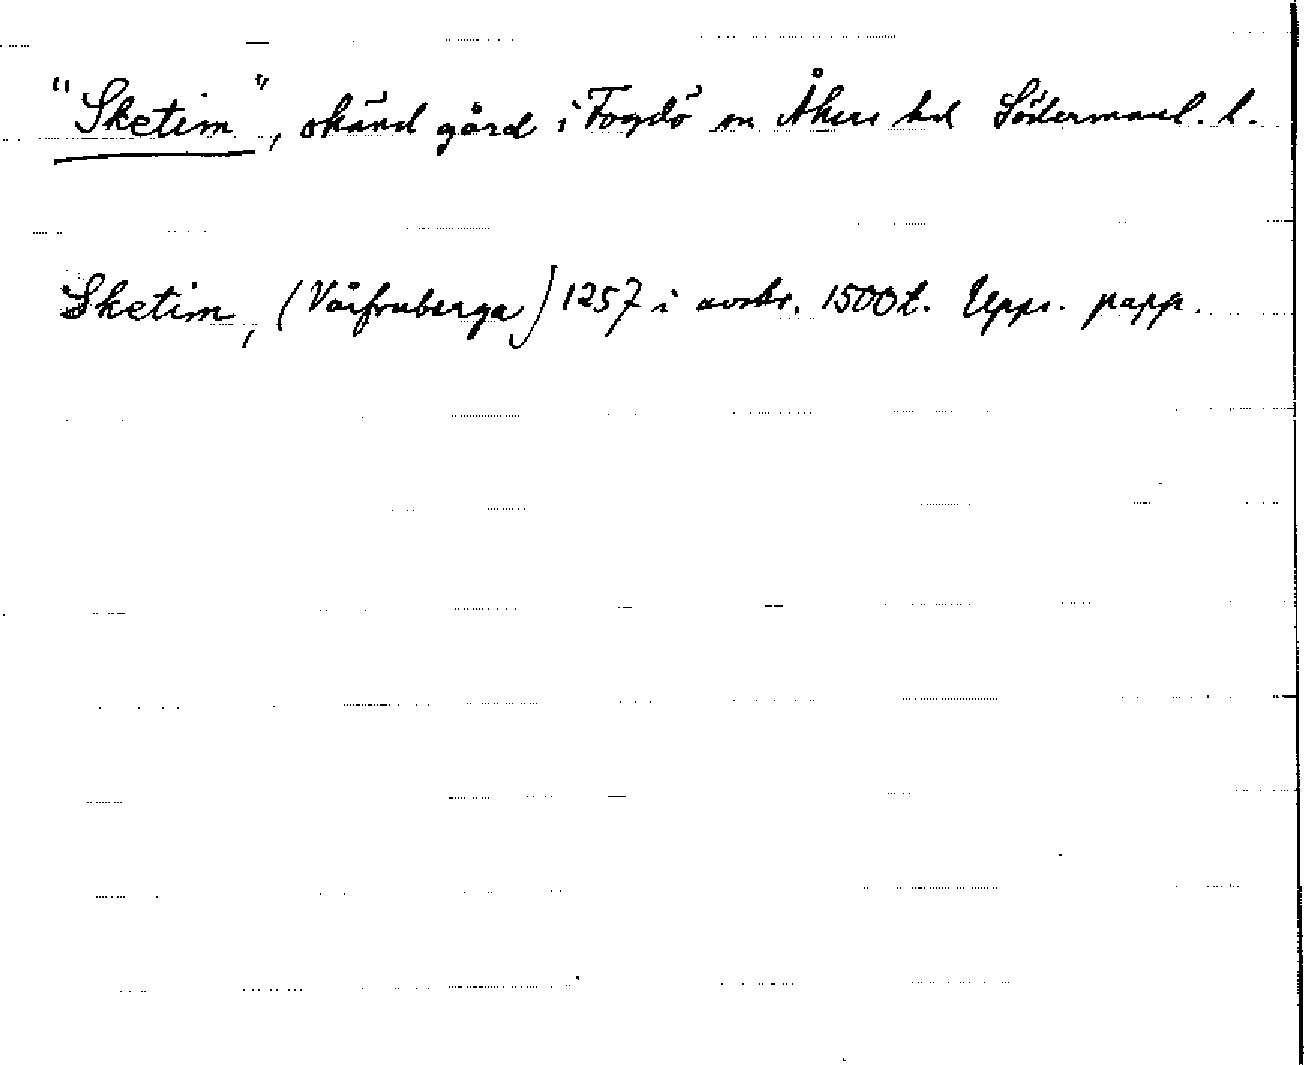 "Sketim", okänd gård i Fogdö sn Åkers hd Södermanl. l.
Sketim, (Vårfruberga) 1257 i avskr. 1500t. Upps. papp.